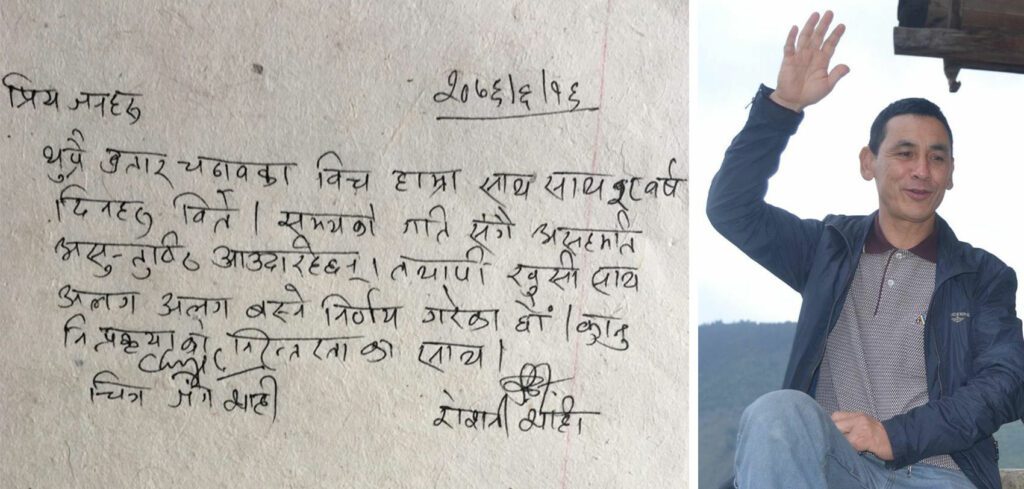 प्रिय जनहरु
२०७६/६/१६
थुप्रै उतार चढावका विच हाम्रा साथ साथ १८ वर्ष
दिनहरु विते । समयको गति संगै असहमति
असन्तुष्ठि आउदारहेछन् । तथापी खुसी साथ
अलग अलग बस्ने निर्णय गरेका छौं । कानु
नि प्रकृयाको निरन्तरताका साथ ।
चित्र जंग शाही
रोशनी शाही